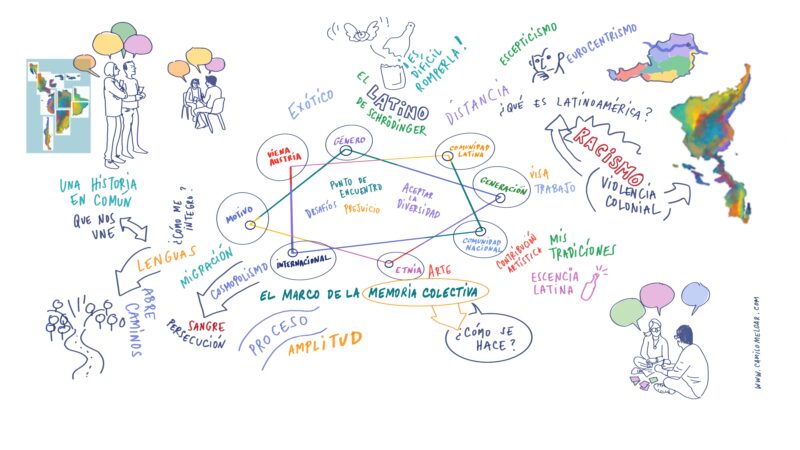 ¡ES
DIFÍCIL
ROMPERLA!
ESCEPTICISMO
EUROCENTRISMO
EXÓTICO
EL
LATINO
DE SCHRÖDINGER
DISTANCIA
¿QUÉ ES LATINOAMÉRICA?
RACISMO
VIOLENCIA
COLONIAL
VIENA
AUSTRIA
GÉNERO
COMUNIDAD
LATINA
GENERACIÓN
VISA
TRABAJO
UNA HISTORIA
EN COMÚN
QUE NOS
UNE
¿CÓMO ME
INTEGRO?
MOTIVO
PUNTO DE
ENCUENTRO
DESAFÍOS
PREJUICIO
ACEPTAR
LA
DIVERSIDAD
COMUNIDAD
NACIONAL
INTERNACIONAL
ETNIA
ARTE
CONTRIBUCIÓN
ARTÍSTICA
MIS
TRADICIONES
ESCENCIA
LATINA
LENGUAS
MIGRACIÓN
COSMOPOLISMO
ABRE
CAMINOS
SANGRE
PERSECUCIÓN
EL MARCO DE LA MEMORIA COLECTIVA
PROCESO
AMPLITUD
¿CÓMO SE
HACE?
WWW.CAMILOMELGAR.COM